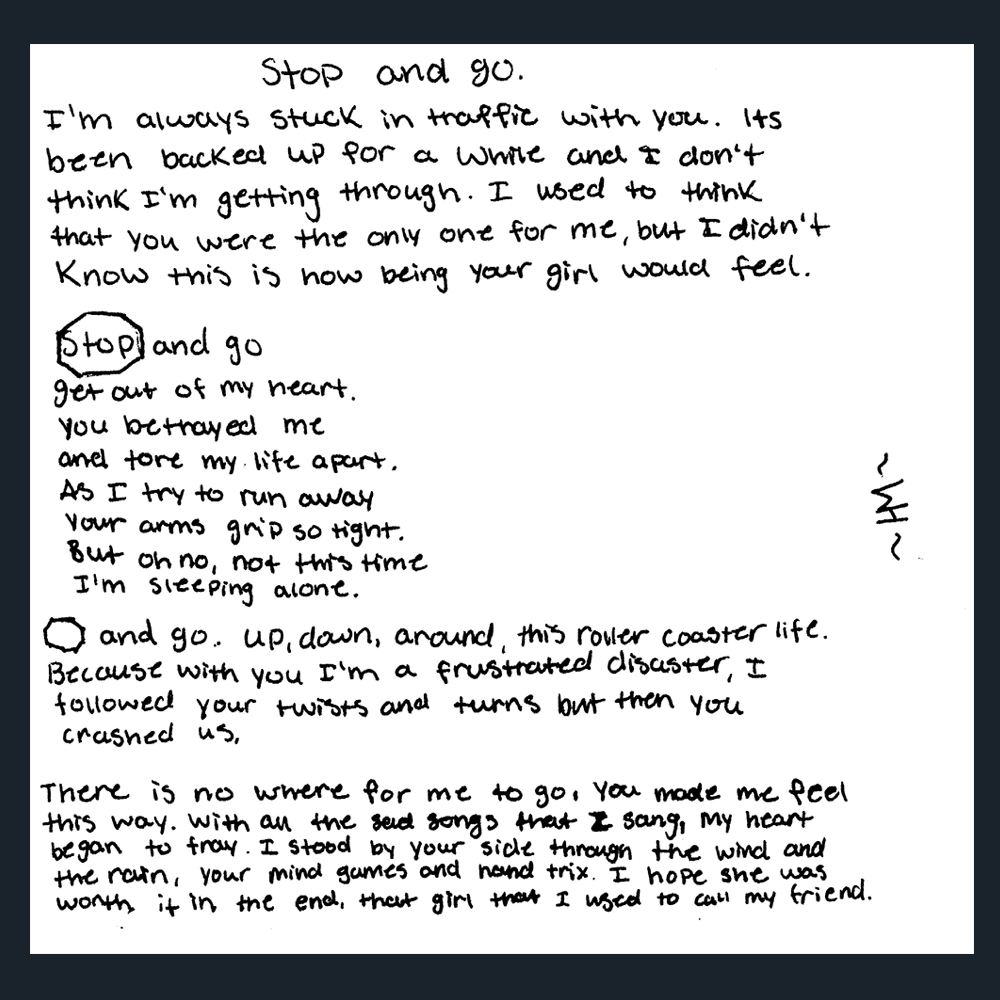 Stop and go.
I'm always stuck in traffic with you. Its
been backed up for a while and I don't
think I'm getting through. I used to think
that you were the only one for me, but I didn't
Know this is how being your girl would feel.
Stop and go
get out of my heart.
you betrayed me
and tore my life apart.
As I try to run away
Your arms grip so tight.
But oh no, not this time
I'm sleeping alone.
and go. up, down, around, this roller coaster life.
Because with you I'm a frustrated disaster, I
followed your twists and turns but then you
crashed us.
There is no where for me to go. You made me feel
this way. With all the sad songs that I sang, My heart
began to fray. I stood by your side through the wind and
the rain, your mind games and hand trix. I hope she was
worth it in the end, that girl that I used to call my friend.
~WH~